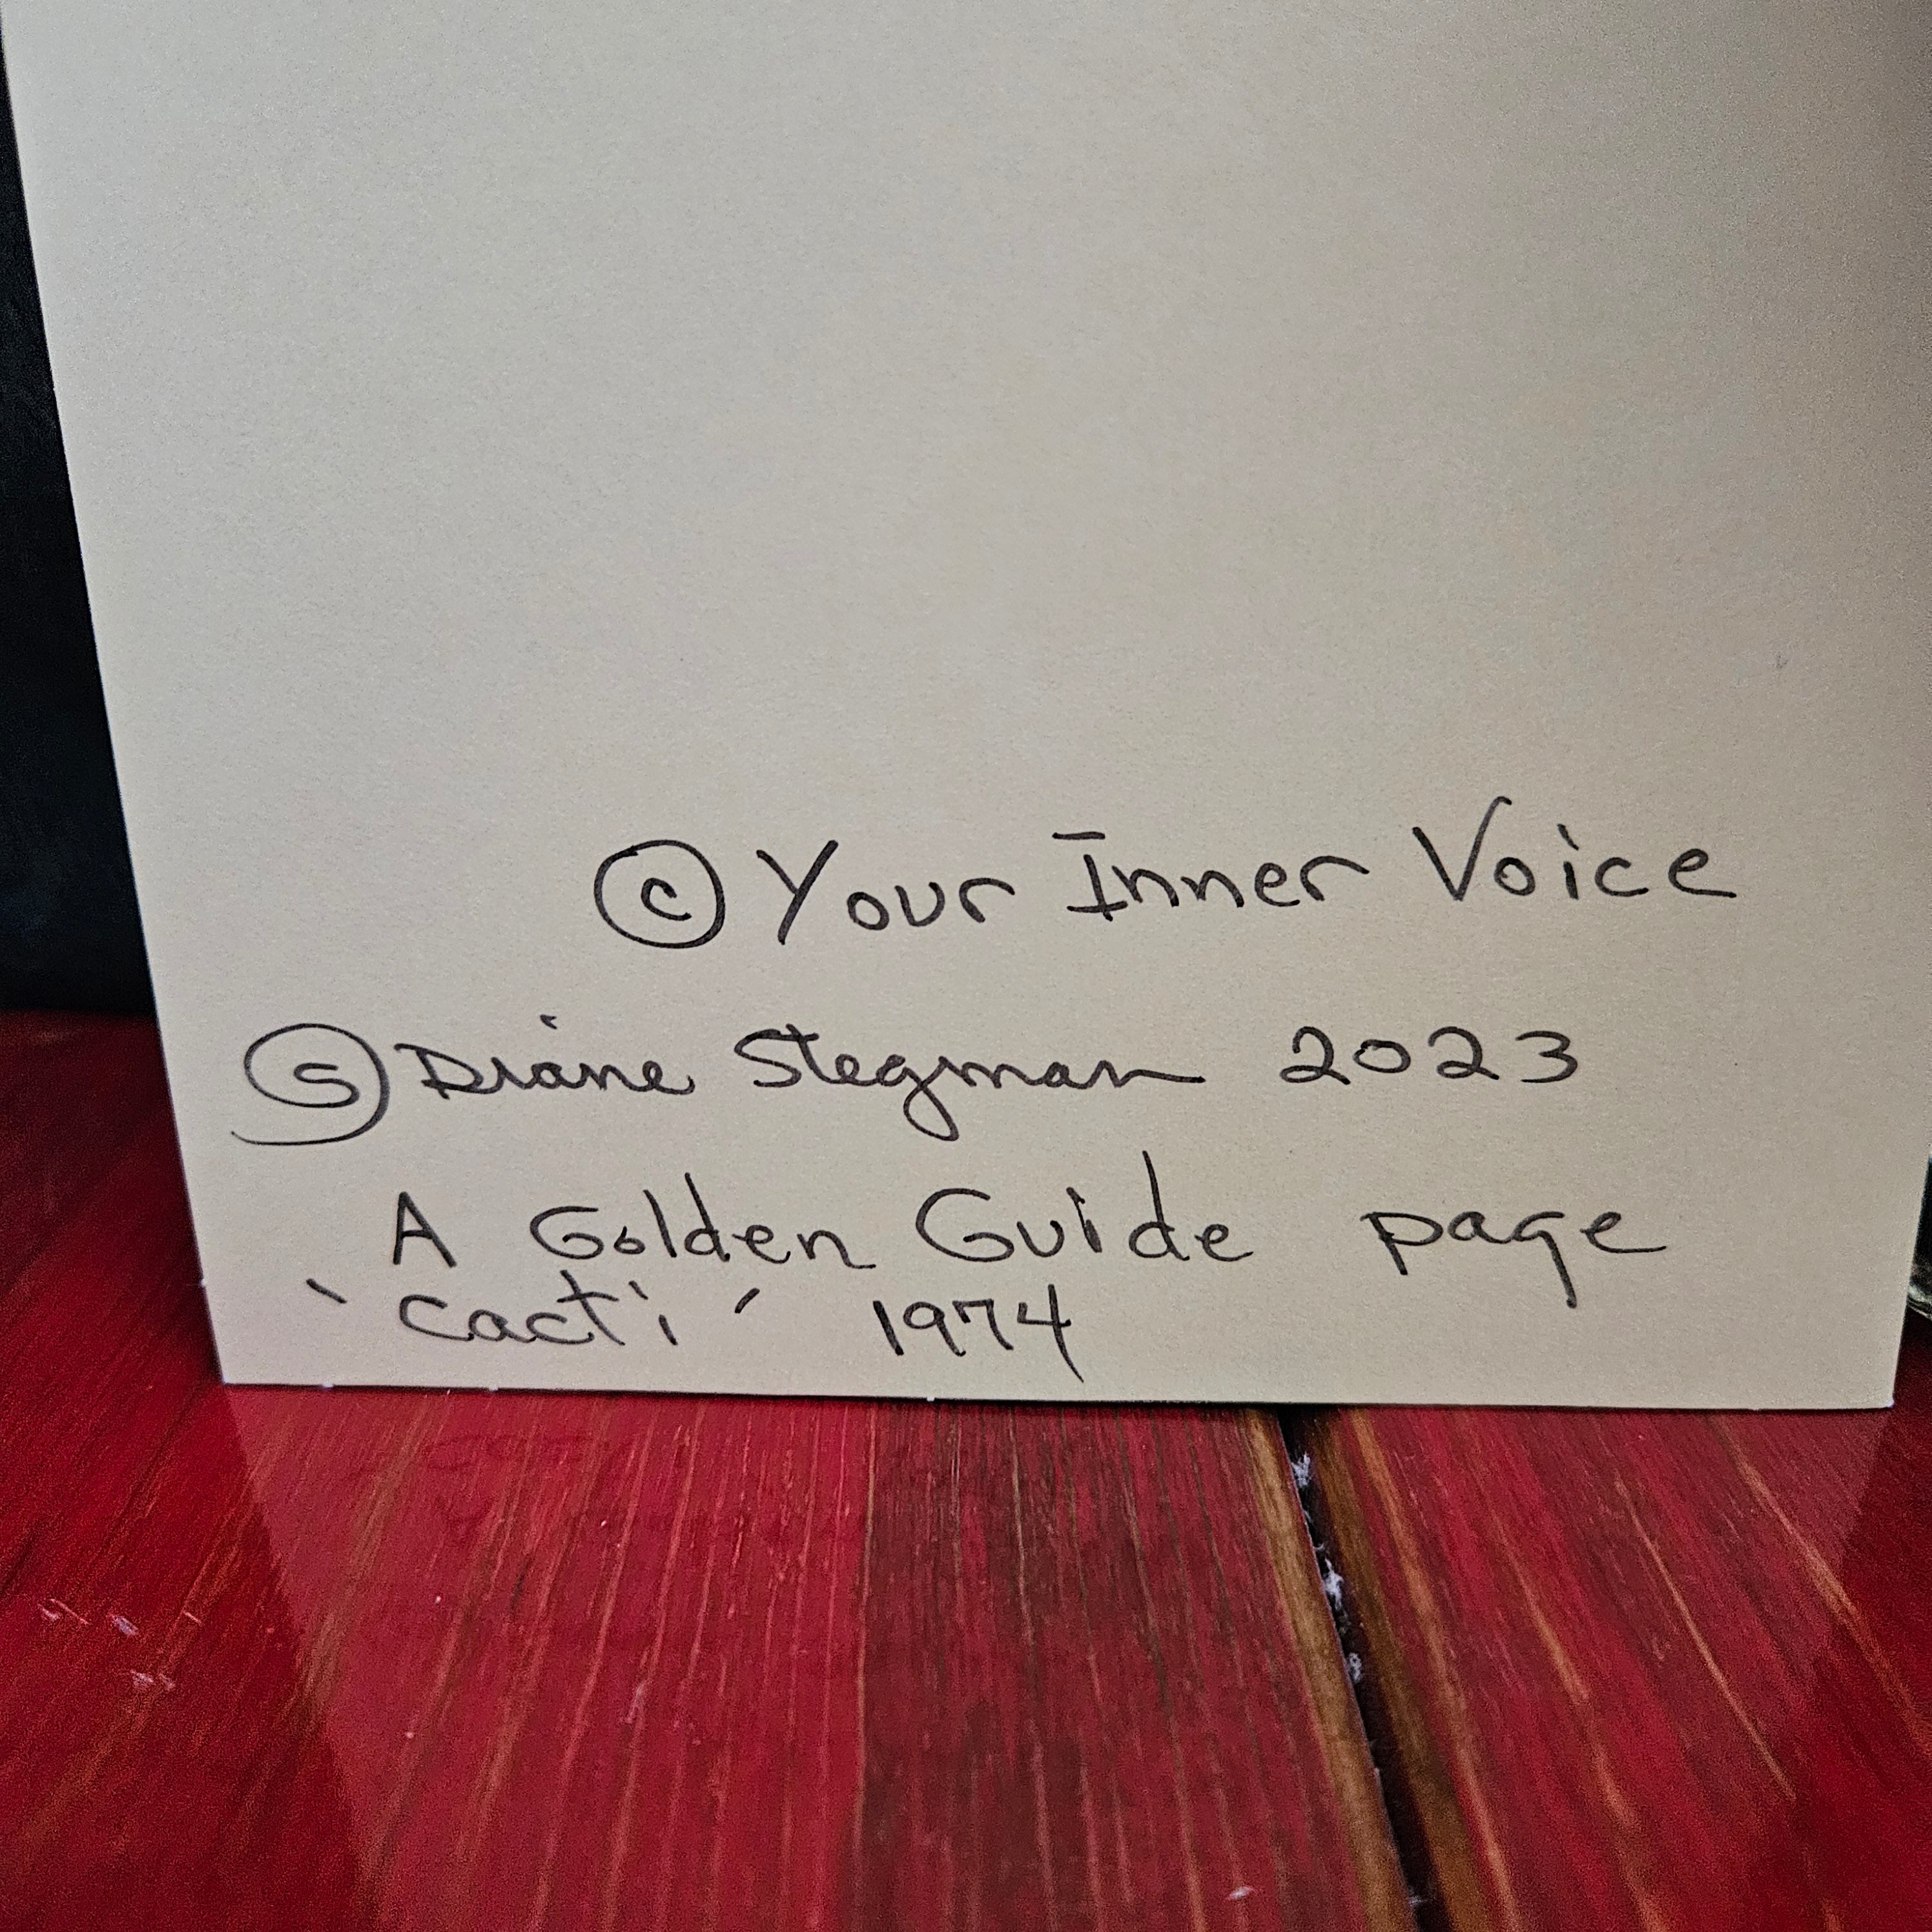 © Your Inner Voice
Ⓢ Diane Stegman 2023
A Golden Guide page
`Cacti´ 1974